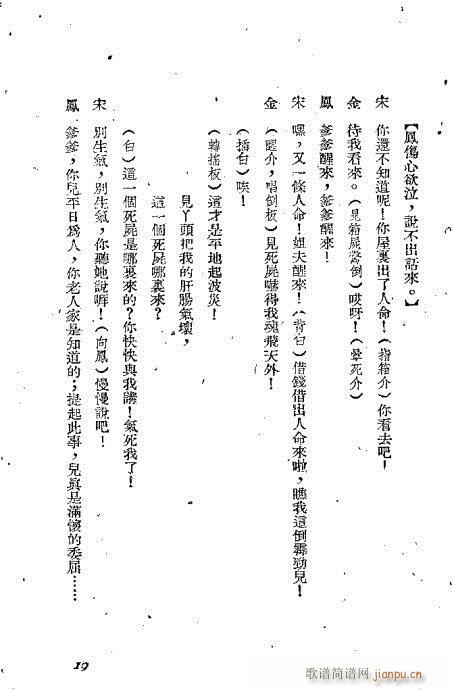 【鳳傷心欲泣，說不出話來。】
宋　你還不知道呢！你屋裏出了人命！（指箱介）你看去吧！
金　待我看來。（見箱屍驚倒）哎呀！（暈死介）
鳳　爹爹醒來，爹爹醒來！
宋　嘿，又一條人命！姐夫醒來！（背白）借錢借出人命來啦，瞧我這倒霉勁兒！
金　（醒介，唱倒板）見死屍嚇得我魂飛天外！
（插白）唉！
（轉搖板）這才是平地起波災！
見丫頭把我的肝腸氣壞，
這一個死屍哪裏來？
（白）這一個死屍是哪裏來的？你快快與我講！氣死我了！
宋　別生氣，別生氣，你聽她說啊！（向鳳）慢慢說吧！
鳳　爹爹，你兒平日爲人，你老人家是知道的；提起此事，兒眞是滿懷的委屈……
19
歌谱简谱网
jianpu.cn